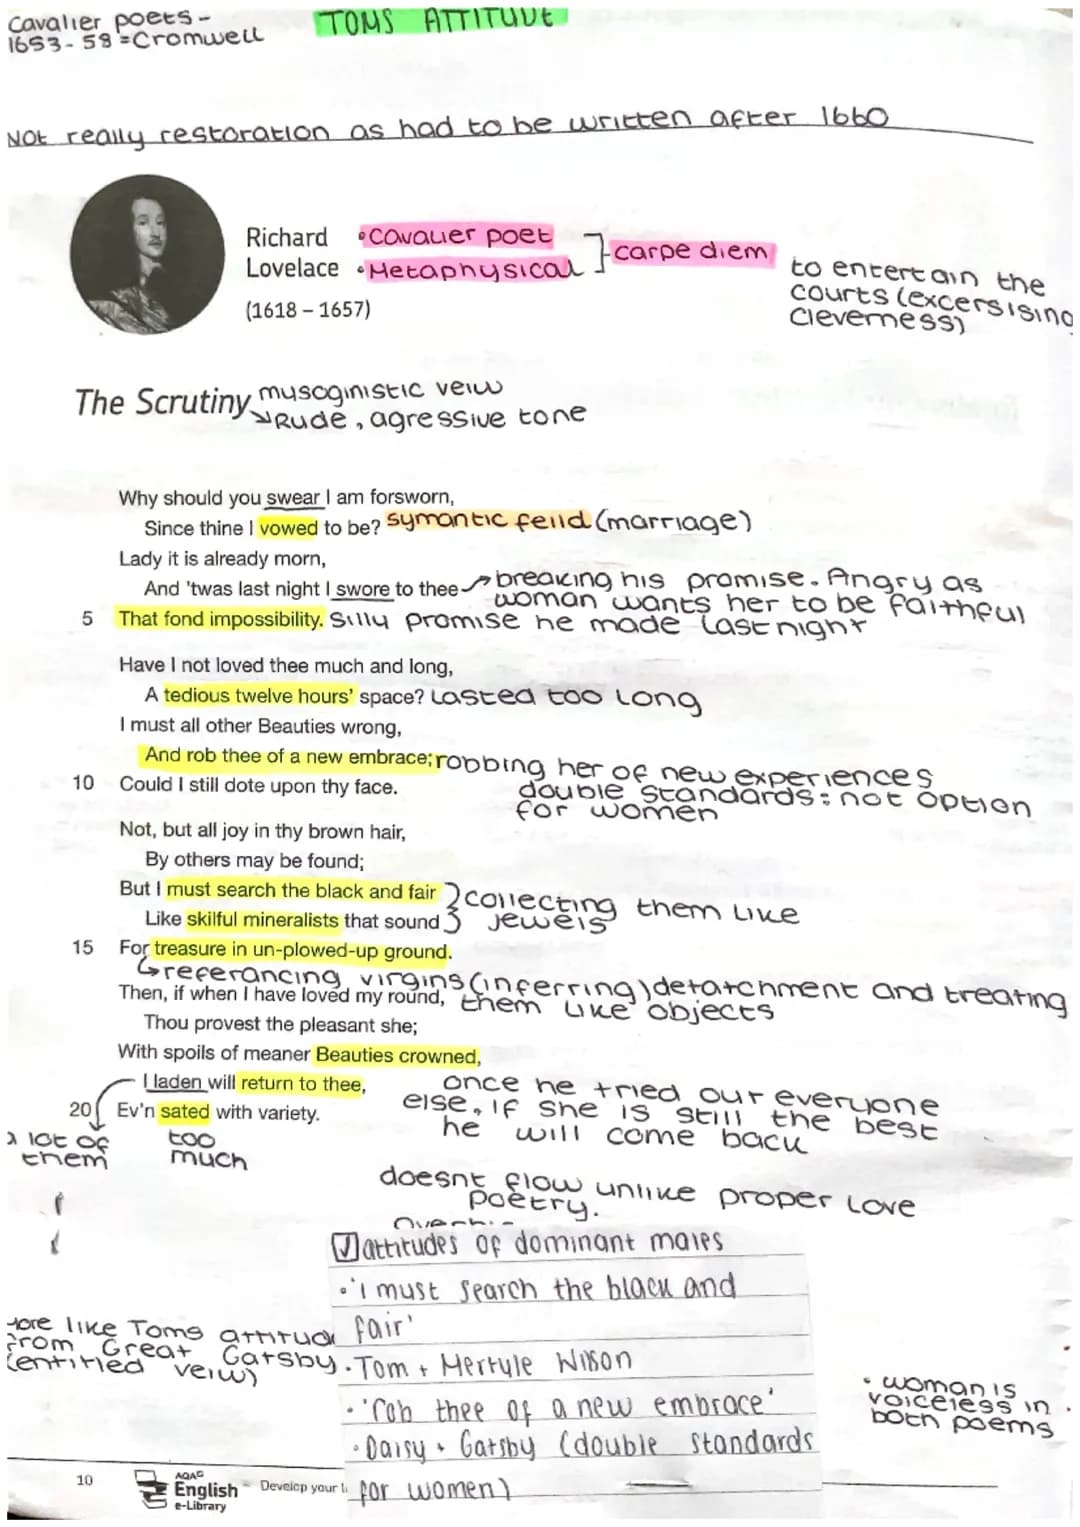 Cavalier poets-
1653-58=Cromwell
TOMS ATTITUDE
Not really restoration as had to be written after 1660
Richard
Lovelace
(1618 – 1657)
•Cavalier poet
•Metaphysical
carpe diem
to entertain the
courts (excersising
cleverness)
The Scrutiny
musoginistic veiw
Rude, agressive tone
Why should you swear I am forsworn,
Since thine I vowed to be? symantic feild (marriage)
Lady it is already morn,
And 'twas last night I swore to thee
breaking his promise. Angry as
woman wants her to be faithful
5 That fond impossibility. Silly promise he made last night
Have I not loved thee much and long,
A tedious twelve hours' space? Lasted too long
I must all other Beauties wrong,
And rob thee of a new embrace; robbing her of new experiences
10 Could I still dote upon thy face.
double standards: not option
for women
Not, but all joy in thy brown hair,
By others may be found;
But I must search the black and fair
Like skilful mineralists that sound
collecting them like
jewels
15 For treasure in un-plowed-up ground.
referancing virgins (inferring) detatchment and treating
them like objects
Then, if when I have loved my round,
Thou provest the pleasant she;
With spoils of meaner Beauties crowned,
I laden will return to thee,
20 Ev'n sated with variety.
once he tried our everyone
else, if she is still the best
he will come back
a lot of
them
too
much
doesnt flow unlike proper love
poetry.
attitudes of dominant males
•'I must search the black and
fair'
•Tom + Mertyle Wilson
•'rob thee of a new embrace'
•Daisy + Gatsby (double standards
for women)
More like Toms attitude
from Great Gatsby
(entitled veiw)
• woman is
voiceless in
both poems
10
AQA
English
e-Library
Develop your